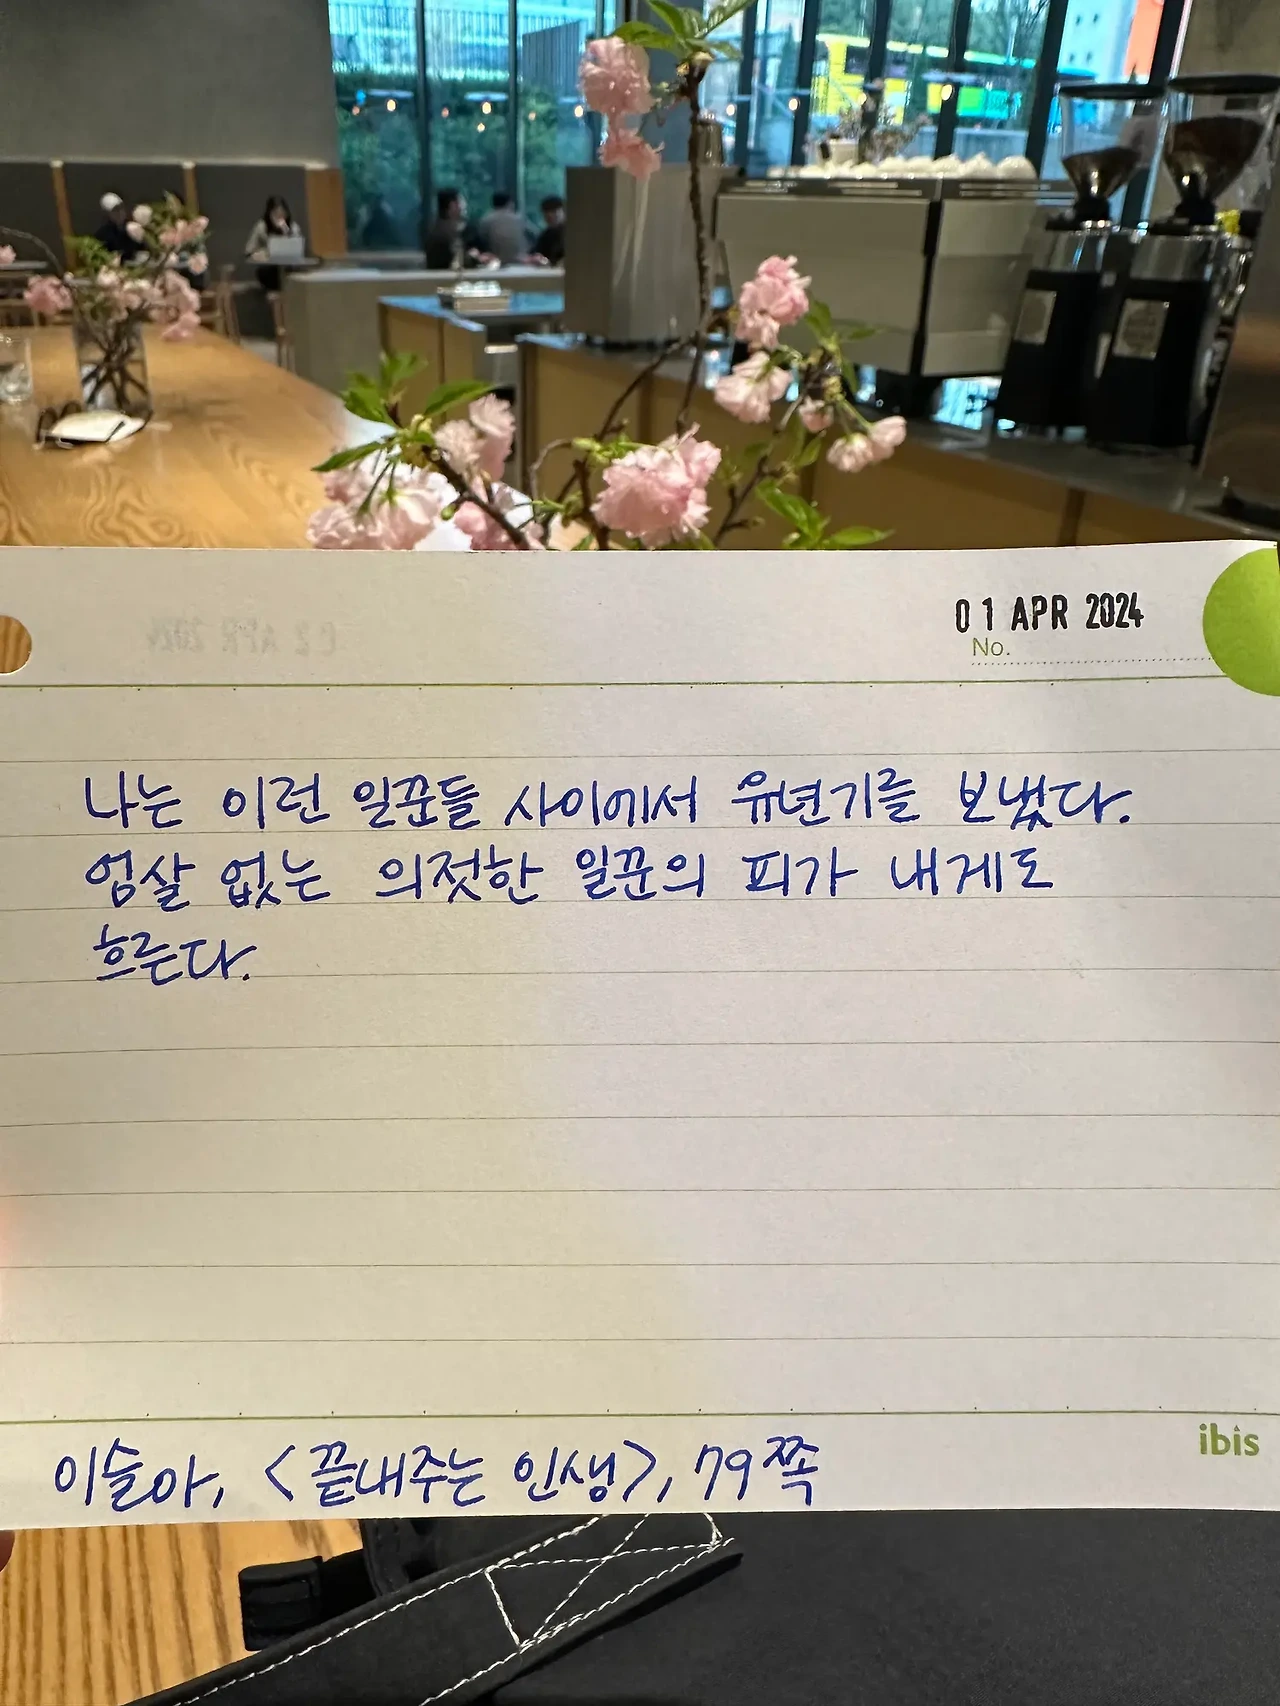 01 APR 2024
No.
나는 이런 일꾼들 사이에서 유년기를 보냈다.
엄살 없는 의젓한 일꾼의 피가 내게도
흐른다.
ibis
이슬아, <끝내주는 인생>, 79쪽